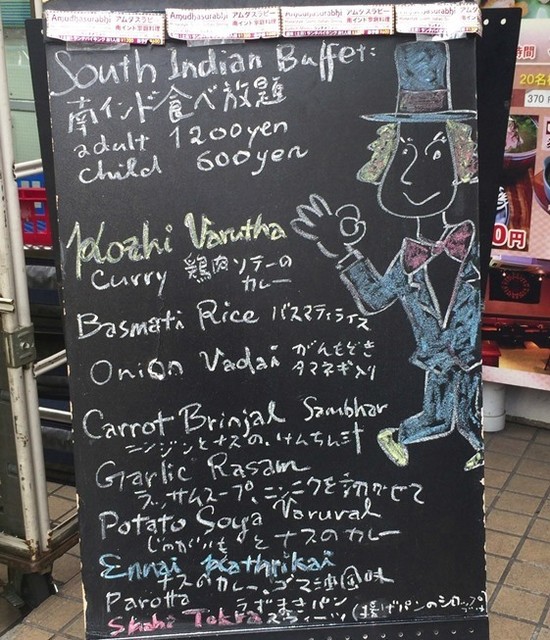 Amudhasurabhi アムダスラビー
Amudhasurabhi アムダスラビー
南インド家庭料理
Amudhasurabhi アムダスラビー
南インド家庭料理
Amudhasurabhi アムダスラビー
南インド家庭料理
South Indian Buffet:
南インド食べ放題
adult 1200yen
child 600yen
Kozhi Varutha
curry 鶏肉ソテーの
カレー
Basmati Rice バスマティライス
Onion Vadai がんもどき
タマネギ入り
Carrot Brinjal Sambhar
ニンジンとナスの、けんちん汁
Garlic Rasam
ラッサムスープ、ニンニクを効かせて
Potato Soya Varuval
じゃがいもとナスのカレー
Ennai Kathrikai
ナスのカレー、ゴマ油風味
Parotta うずまきパン
Shahi Tukra スウィーツ(揚げパンのシロップ
時間
20名
370
0円